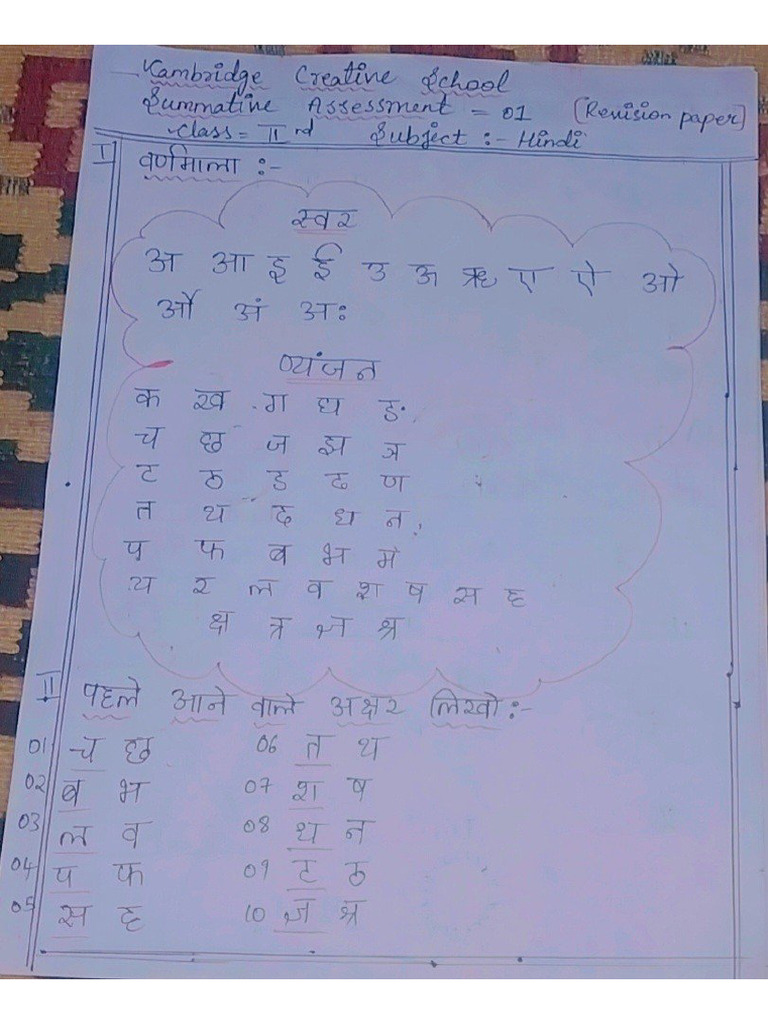 Kambridge Creative School
Summative Assessment = 01 (Revision paper)
Class = II rd Subject :- Hindi
I वर्णमाला :-
स्वर
अ आ इ ई उ ऊ ऋ ए ऐ ओ
औ अं अः
व्यंजन
क ख ग घ ङ
च छ ज झ ञ
ट ठ ड ढ ण
त थ द ध न
प फ ब भ म
य र ल व श ष स ह
क्ष त्र ज्ञ श्र
II पहले आने वाले अक्षर लिखो :-
01 च छ 06 त थ
02 ब भ 07 श ष
03 ल व 08 ध न
04 प फ 09 ट ठ
05 स ह 10 ज्ञ श्र